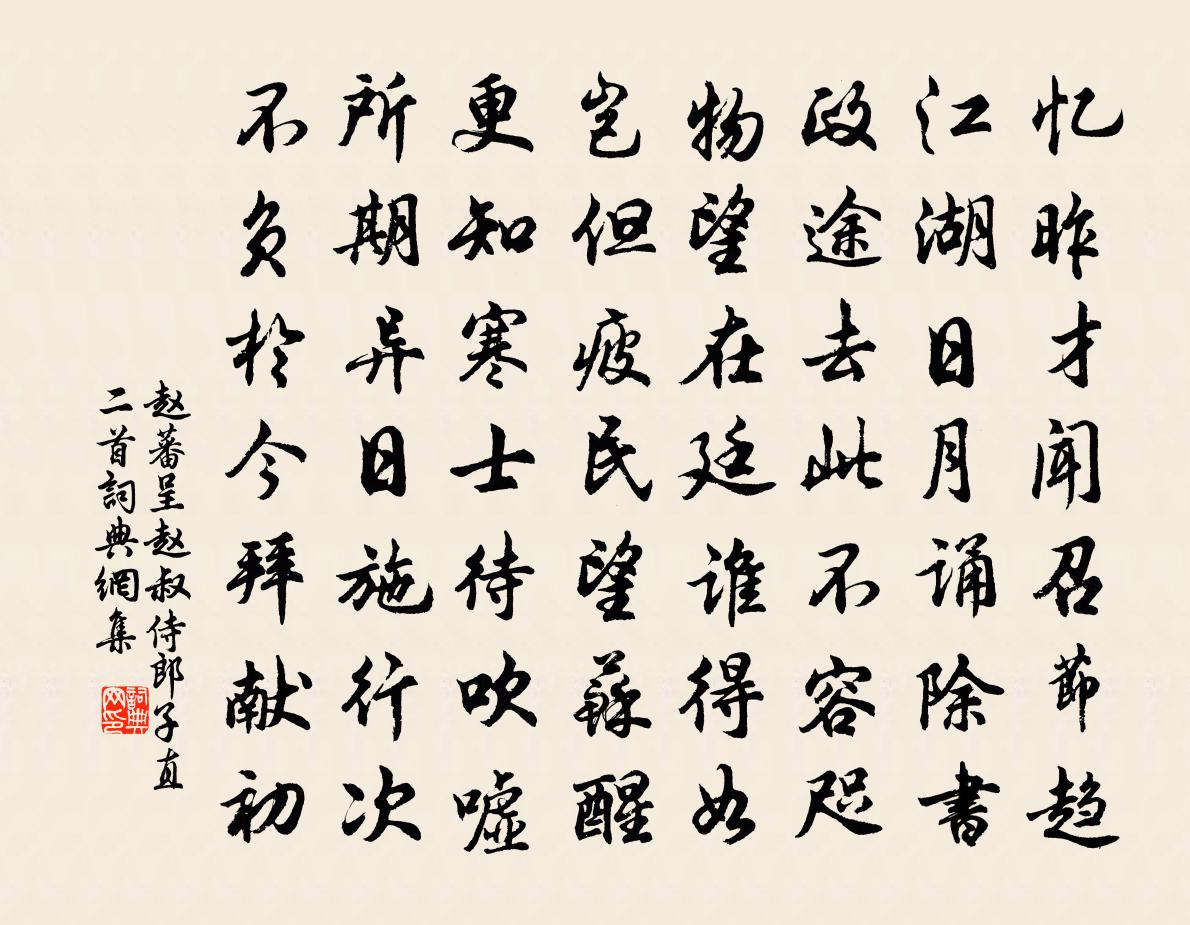 忆昨才闻召节趋
江湖日月诵除书
政途去此不容咫
物望在廷谁得如
岂但疲民望蘇醒
更知寒士待吹嘘
所期异日施行次
不负於今拜献初
赵蕃呈赵叔侍郎子直
二首詞典網集
詞典
网印